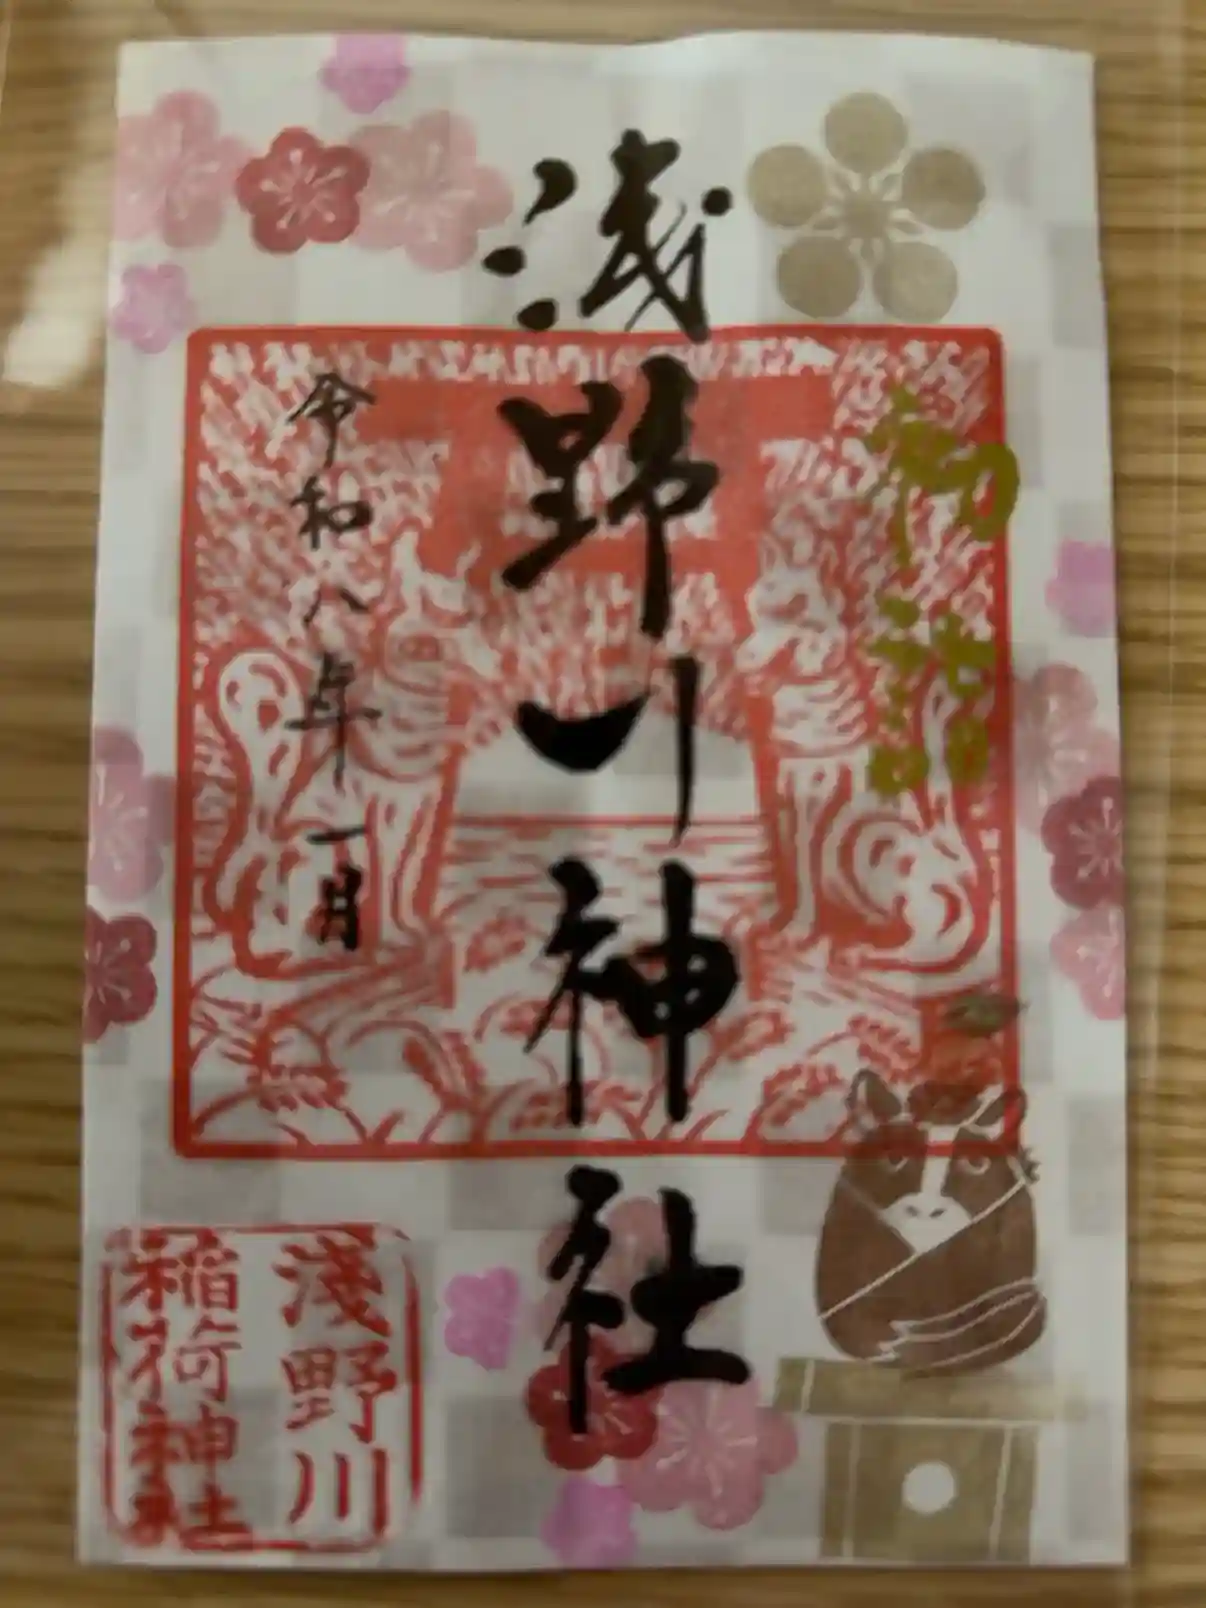 初詣
浅野川神社
令和八年一月
淺野川
稲荷神社